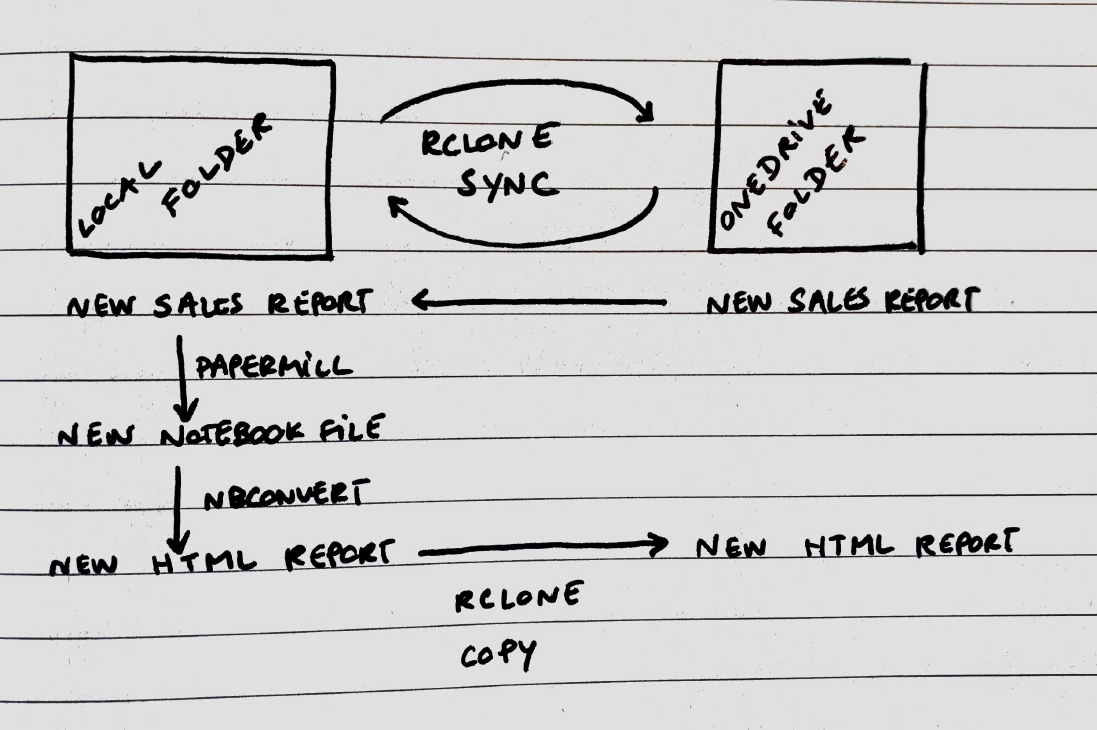 LOCAL
FOLDER
RCLONE
SYNC
ONEDRIVE
FOLDER
NEW SALES REPORT
NEW SALES REPORT
PAPERMILL
NEW NOTEBOOK FILE
NBCONVERT
NEW HTML REPORT
NEW HTML REPORT
RCLONE
COPY